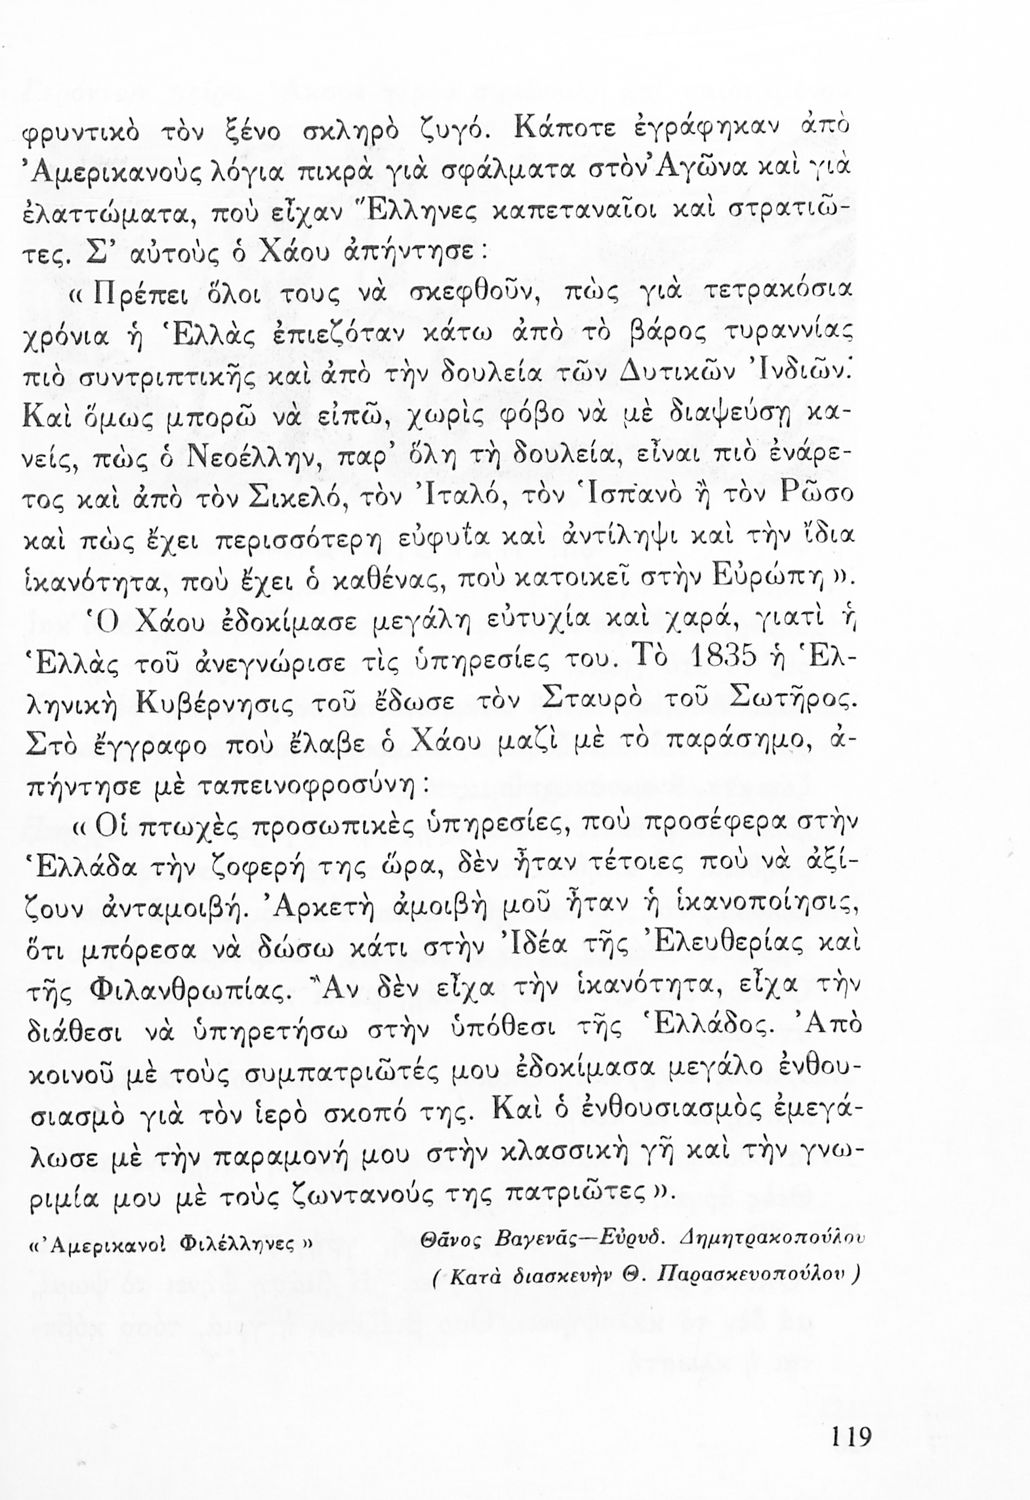 φρυντικὸ τὸν ξένο σκληρὸ ζυγό. Κάποτε ἐγράφηκαν ἀπὸ
Ἀμερικανοὺς λόγια πικρὰ γιὰ σφάλματα στὸν Ἀγῶνα καὶ γιὰ
ἐλαττώματα, ποὺ εἶχαν Ἕλληνες καπεταναῖοι καὶ στρατιῶ-
τες. Σ’ αὐτοὺς ὁ Χάου ἀπήντησε :
« Πρέπει ὅλοι τους νὰ σκεφθοῦν, πὼς γιὰ τετρακόσια
χρόνια ἡ Ἑλλὰς ἐπιεζόταν κάτω ἀπὸ τὸ βάρος τυραννίας
πιὸ συντριπτικῆς καὶ ἀπὸ τὴν δουλεία τῶν Δυτικῶν Ἰνδιῶν.
Καὶ ὅμως μπορῶ νὰ εἰπῶ, χωρὶς φόβο νὰ μὲ διαψεύσῃ κα-
νείς, πὼς ὁ Νεοέλλην, παρ’ ὅλη τὴ δουλεία, εἶναι πιὸ ἐνάρε-
τος καὶ ἀπὸ τὸν Σικελό, τὸν Ἰταλό, τὸν Ἱσπανὸ ἢ τὸν Ρῶσο
καὶ πὼς ἔχει περισσότερη εὐφυΐα καὶ ἀντίληψι καὶ τὴν ἴδια
ἱκανότητα, ποὺ ἔχει ὁ καθένας, ποὺ κατοικεῖ στὴν Εὐρώπη ».
Ὁ Χάου ἐδοκίμασε μεγάλη εὐτυχία καὶ χαρά, γιατὶ ἡ
Ἑλλὰς τοῦ ἀνεγνώρισε τὶς ὑπηρεσίες του. Τὸ 1835 ἡ Ἑλ-
ληνικὴ Κυβέρνησις τοῦ ἔδωσε τὸν Σταυρὸ τοῦ Σωτῆρος.
Στὸ ἔγγραφο ποὺ ἔλαβε ὁ Χάου μαζὶ μὲ τὸ παράσημο, ἀ-
πήντησε μὲ ταπεινοφροσύνη :
« Οἱ πτωχὲς προσωπικὲς ὑπηρεσίες, ποὺ προσέφερα στὴν
Ἑλλάδα τὴν ζοφερή της ὥρα, δὲν ἦταν τέτοιες ποὺ νὰ ἀξί-
ζουν ἀνταμοιβή. Ἀρκετὴ ἀμοιβὴ μοῦ ἦταν ἡ ἱκανοποίησις,
ὅτι μπόρεσα νὰ δώσω κάτι στὴν Ἰδέα τῆς Ἐλευθερίας καὶ
τῆς Φιλανθρωπίας. Ἂν δὲν εἶχα τὴν ἱκανότητα, εἶχα τὴν
διάθεσι νὰ ὑπηρετήσω στὴν ὑπόθεσι τῆς Ἑλλάδος. Ἀπὸ
κοινοῦ μὲ τοὺς συμπατριῶτές μου ἐδοκίμασα μεγάλο ἐνθου-
σιασμὸ γιὰ τὸν ἱερὸ σκοπό της. Καὶ ὁ ἐνθουσιασμὸς ἐμεγά-
λωσε μὲ τὴν παραμονή μου στὴν κλασσικὴ γῆ καὶ τὴν γνω-
ριμία μου μὲ τοὺς ζωντανούς της πατριῶτες ».
«Ἀμερικανοὶ Φιλέλληνες » Θᾶνος Βαγενᾶς—Εὐρυδ. Δημητρακοπούλου
( Κατὰ διασκευὴν Θ. Παρασκευοπούλου )
119